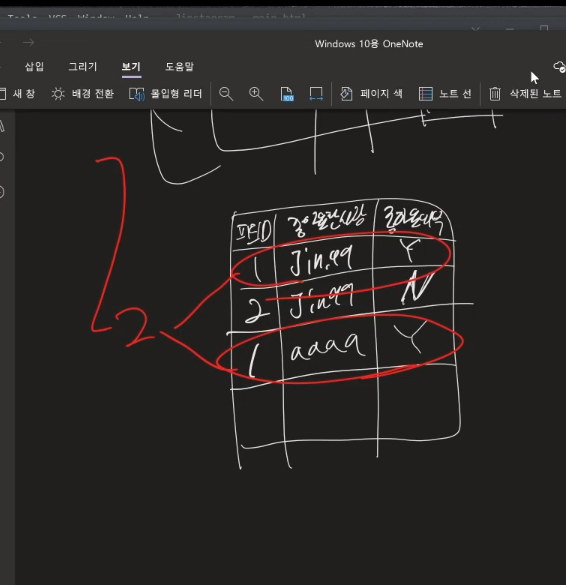 Tools VCS Window Help Jinstagram main.html
Windows 10용 OneNote
삽입 그리기 보기 도움말
새 창 배경 전환 몰입형 리더 페이지 색 노트 선 삭제된 노트
피드ID 좋아요한사람 좋아요여부
1 Jinqq Y
2 Jinqq N
1 aaaa Y
2